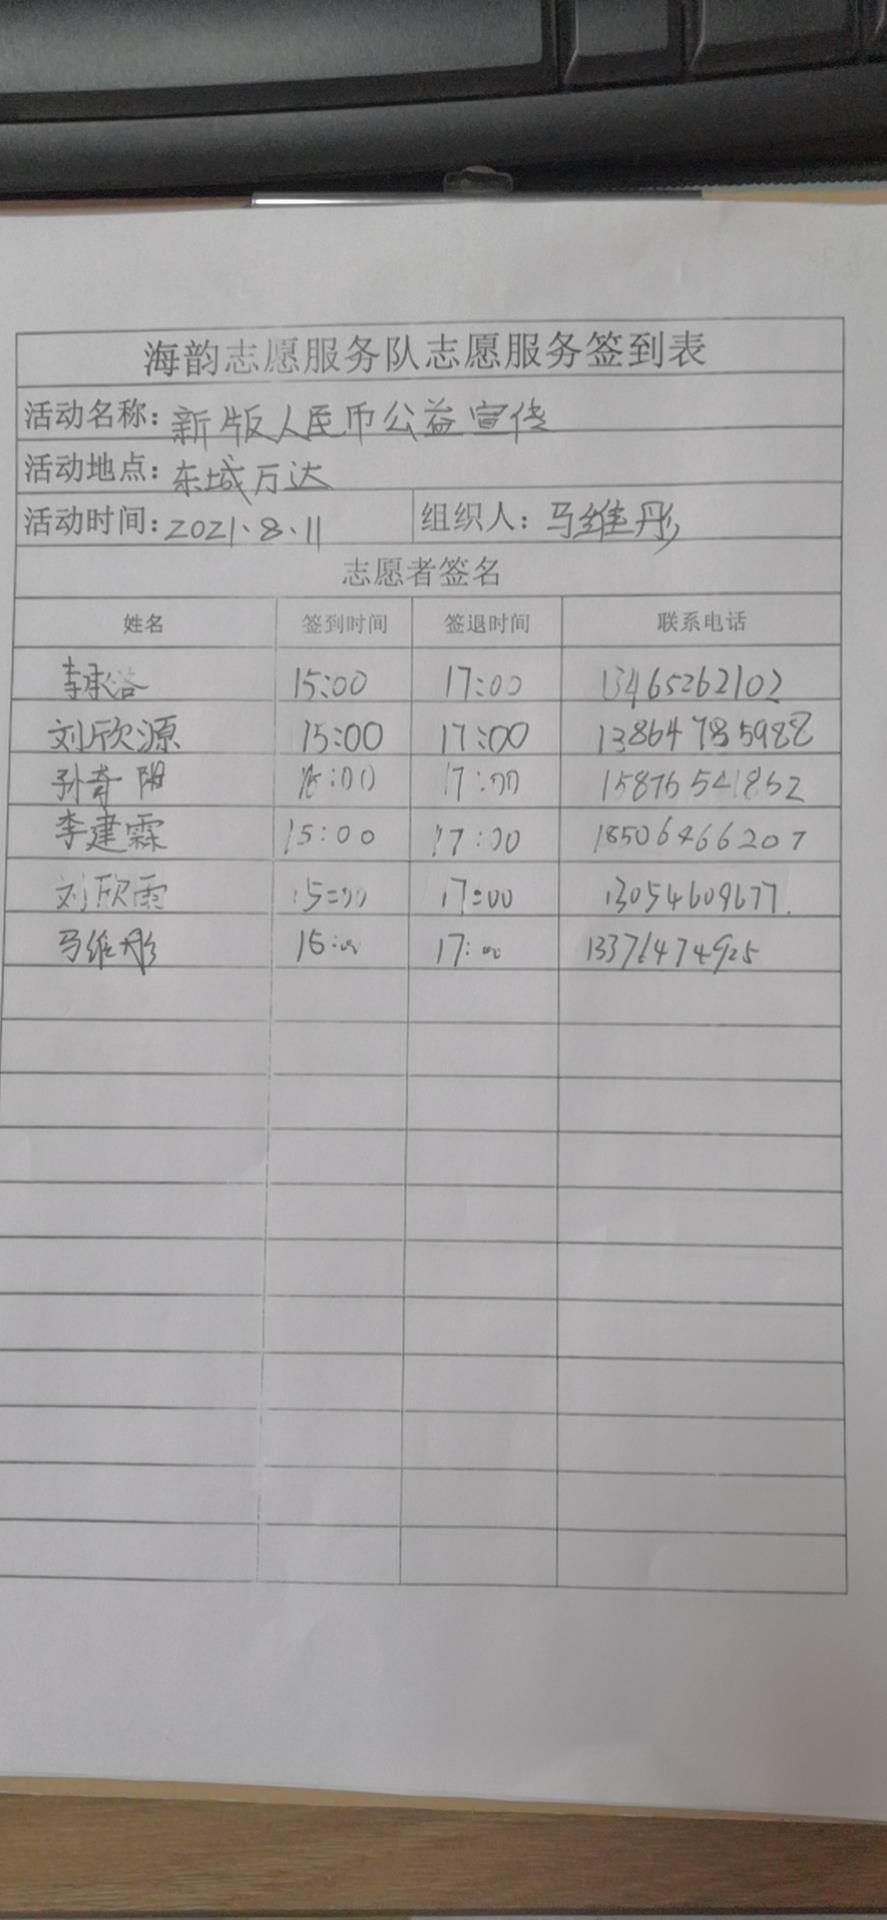 海韵志愿服务队志愿服务签到表
活动名称：新版人民币公益宣传
活动地点：东城万达
活动时间：2021.8.11 组织人：马维彤
志愿者签名
姓名 签到时间 签退时间 联系电话
15:00 17:00 13465262102
刘欣源 15:00 17:00 13864785988
孙奇阳 15:00 17:00 15876541852
李建霖 15:00 17:00 18506466207
刘欣雨 15:00 17:00 13054609677
马维彤 15:00 17:00 13371474925